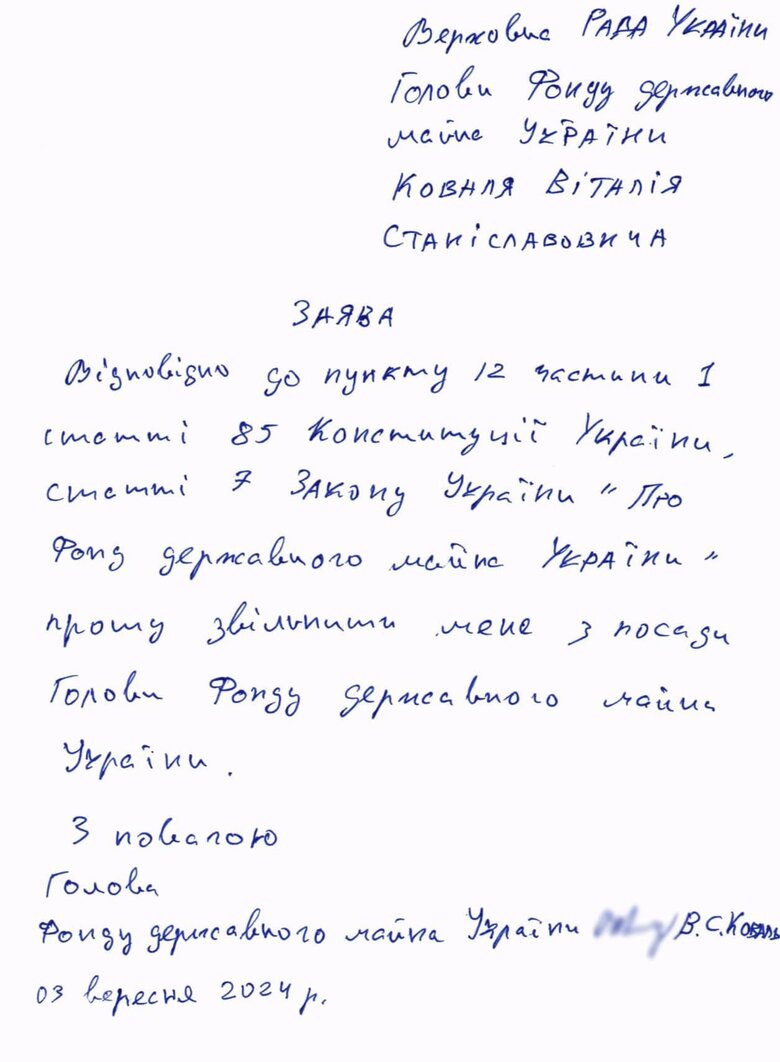 Верховна Рада України
Голови Фонду державного
майна України
Коваля Віталія
Станіславовича
Заява
Відповідно до пункту 12 частини 1
статті 85 Конституції України,
статті 7 Закону України "Про
Фонд державного майна України"
прошу звільнити мене з посади
Голови Фонду державного майна
України.
З повагою
Голова
Фонду державного майна України В.С.Коваль
03 вересня 2024 р.